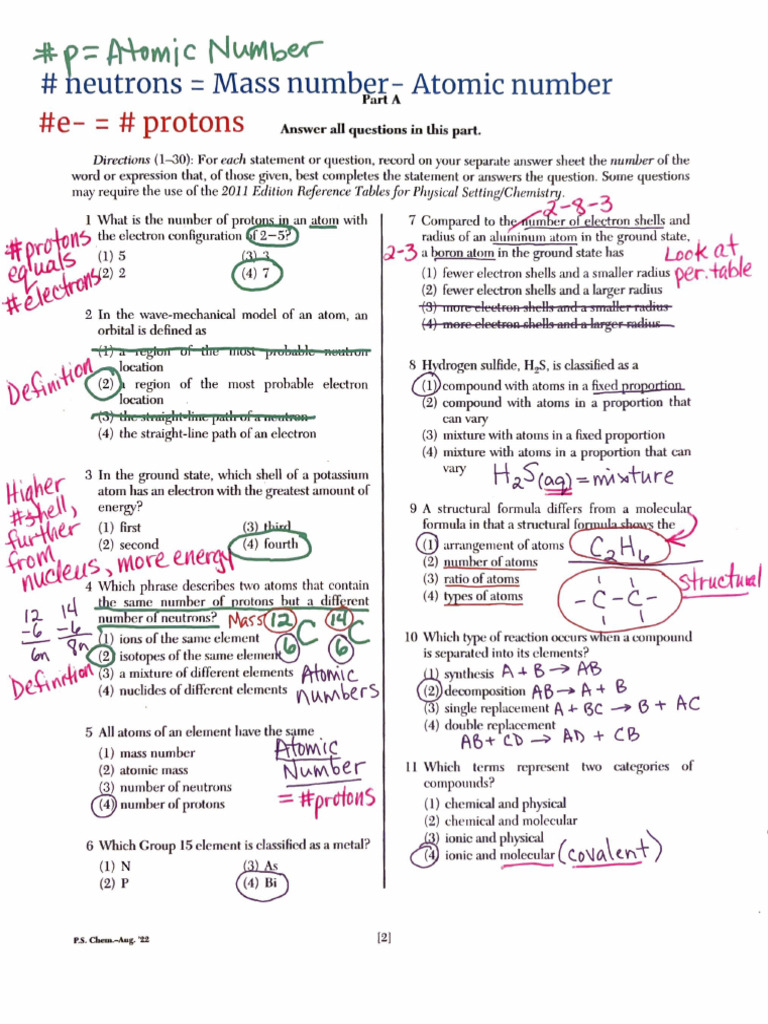 #p = Atomic Number
# neutrons = Mass number- Atomic number
Part A
#e- = # protons
Answer all questions in this part.
Directions (1–30): For each statement or question, record on your separate answer sheet the number of the
word or expression that, of those given, best completes the statement or answers the question. Some questions
may require the use of the 2011 Edition Reference Tables for Physical Setting/Chemistry.
1 What is the number of protons in an atom with
the electron configuration of 2–5?
(1) 5 (3) 3
(2) 2 (4) 7
#protons
equals
#electrons
2 In the wave-mechanical model of an atom, an
orbital is defined as
(1) a region of the most probable neutron
location
(2) a region of the most probable electron
location
(3) the straight-line path of a neutron
(4) the straight-line path of an electron
Definition
3 In the ground state, which shell of a potassium
atom has an electron with the greatest amount of
energy?
(1) first (3) third
(2) second (4) fourth
Higher
#shell,
further
from
nucleus, more energy
4 Which phrase describes two atoms that contain
the same number of protons but a different
number of neutrons?
(1) ions of the same element
(2) isotopes of the same element
(3) a mixture of different elements
(4) nuclides of different elements
Mass 12 14
C C
6 6
Atomic
numbers
12 14
-6 -6
6n 8n
Definition
5 All atoms of an element have the same
(1) mass number
(2) atomic mass
(3) number of neutrons
(4) number of protons
Atomic
Number
= #protons
6 Which Group 15 element is classified as a metal?
(1) N (3) As
(2) P (4) Bi
2-8-3
7 Compared to the number of electron shells and
radius of an aluminum atom in the ground state,
2-3 a boron atom in the ground state has
(1) fewer electron shells and a smaller radius
(2) fewer electron shells and a larger radius
(3) more electron shells and a smaller radius
(4) more electron shells and a larger radius
Look at
per. table
8 Hydrogen sulfide, H₂S, is classified as a
(1) compound with atoms in a fixed proportion
(2) compound with atoms in a proportion that
can vary
(3) mixture with atoms in a fixed proportion
(4) mixture with atoms in a proportion that can
vary
H₂S(aq) = mixture
9 A structural formula differs from a molecular
formula in that a structural formula shows the
(1) arrangement of atoms
(2) number of atoms
(3) ratio of atoms
(4) types of atoms
C₂H₆
structural
-C-C-
10 Which type of reaction occurs when a compound
is separated into its elements?
(1) synthesis A + B → AB
(2) decomposition AB → A + B
(3) single replacement A + BC → B + AC
(4) double replacement
AB + CD → AD + CB
11 Which terms represent two categories of
compounds?
(1) chemical and physical
(2) chemical and molecular
(3) ionic and physical
(4) ionic and molecular (covalent)
P.S. Chem.–Aug. '22
[2]